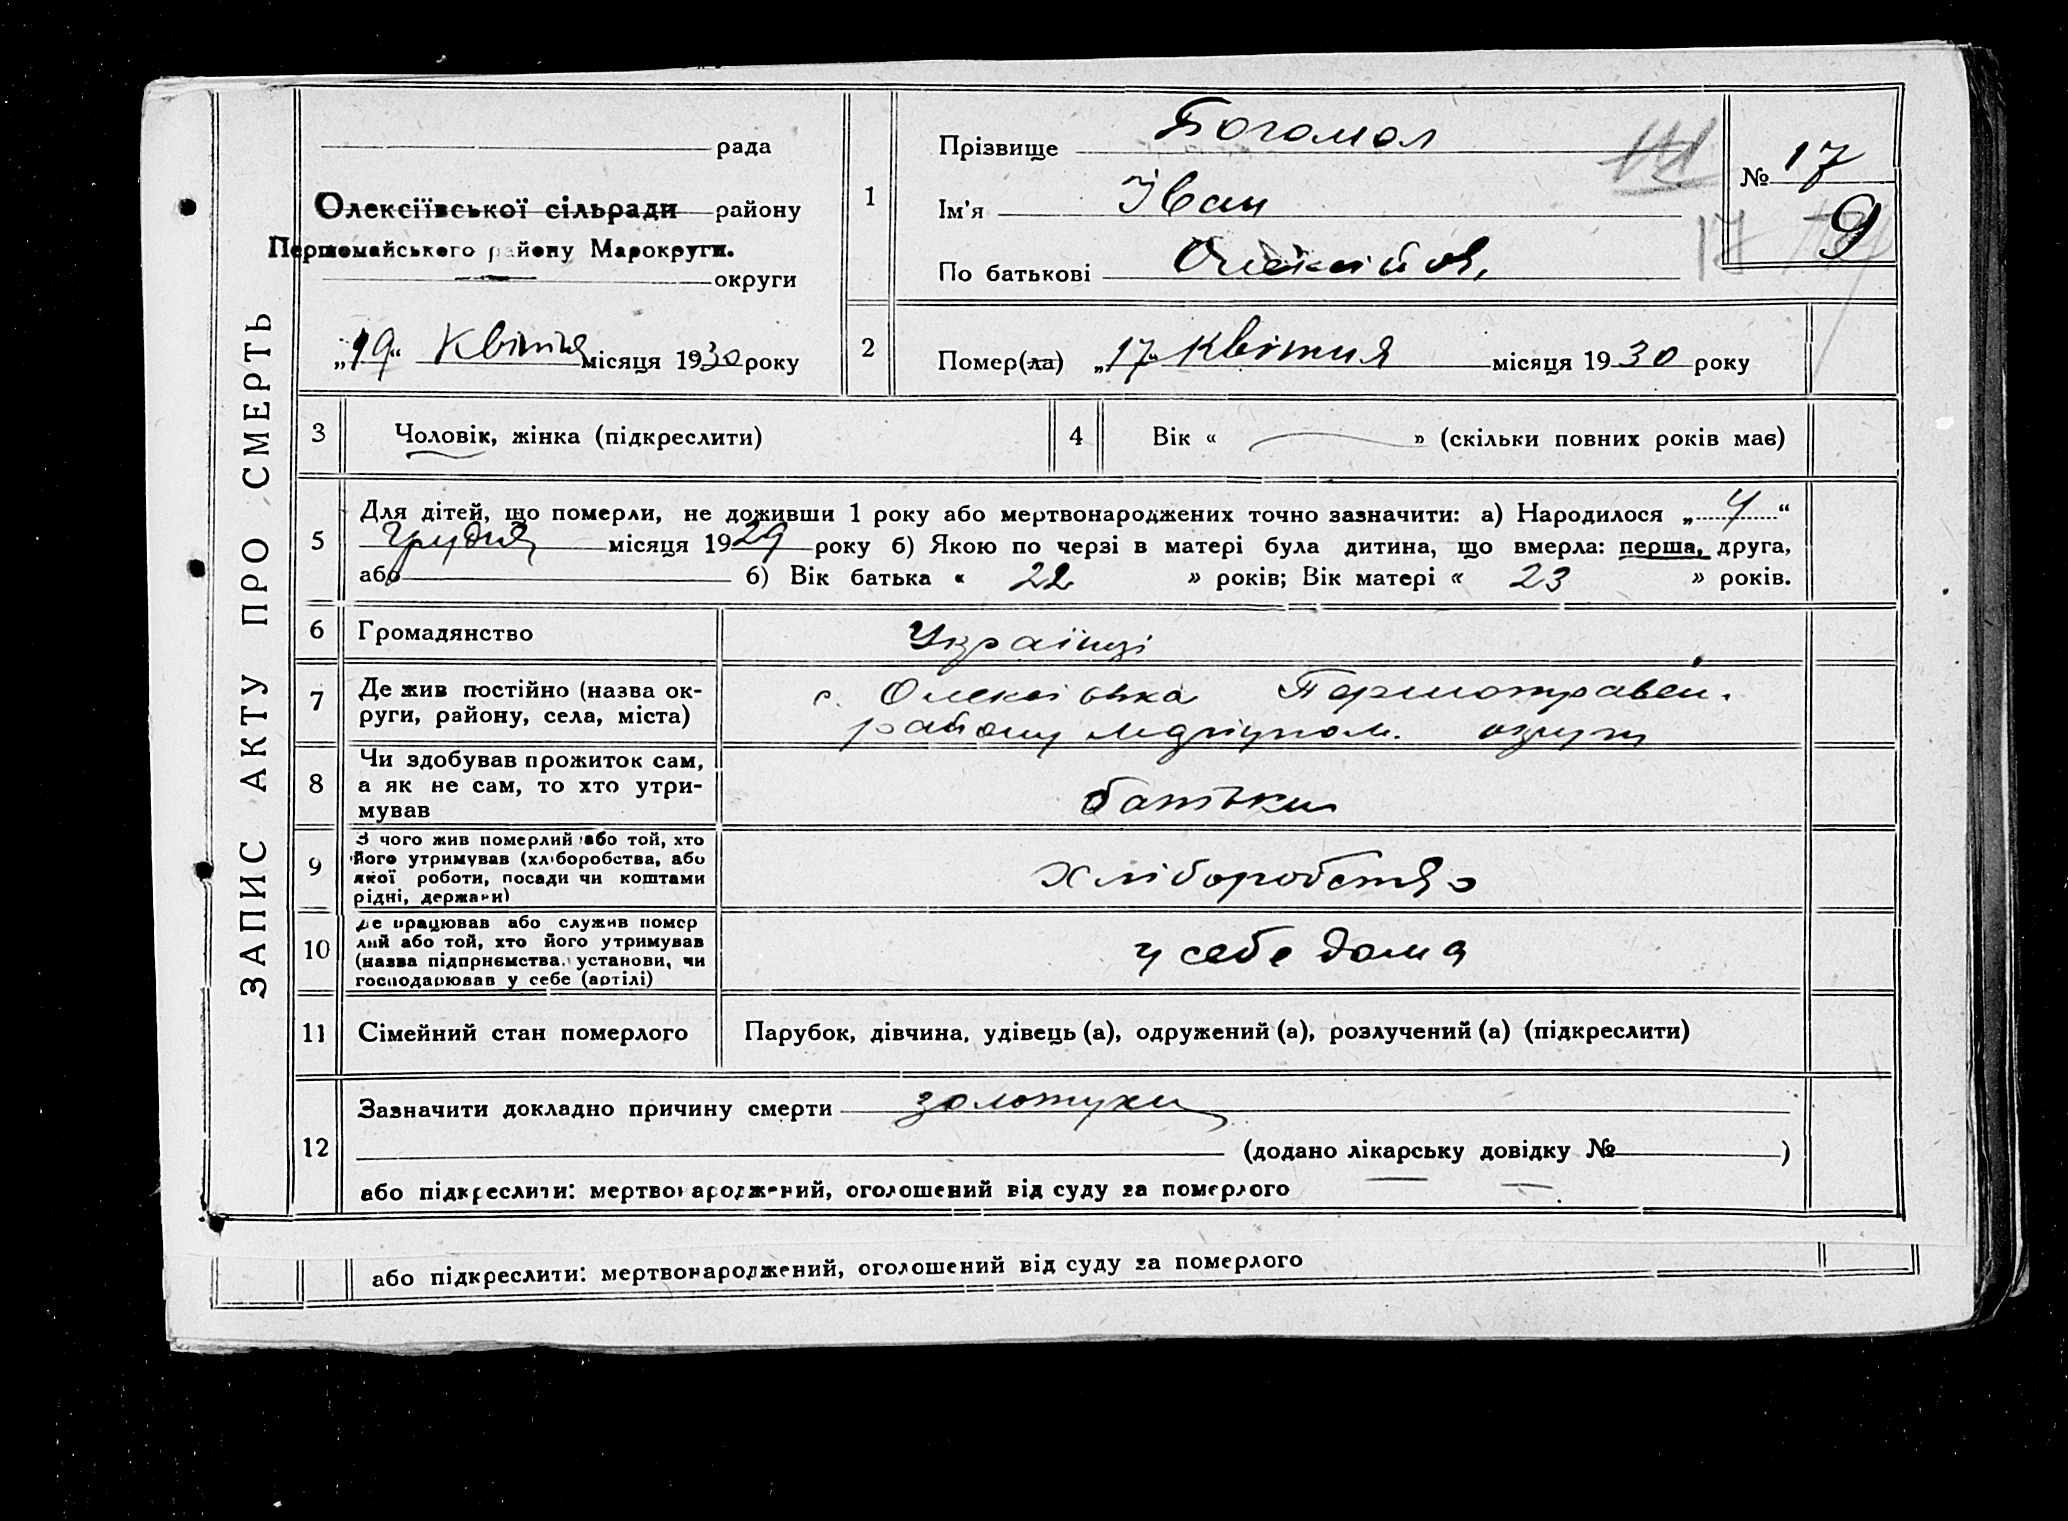 ЗАПИС АКТУ ПРО СМЕРТЬ
рада
Олексіївської сільради району
Першомайського району Марокруги.
округи
„19“ Квітня місяця 1930 року
1
Прізвище Богомол
Ім'я Іван
По батькові Олексійов.
№ 17
9
17
2
Помер(ла) „17“ Квітня місяця 1930 року
3 Чоловік, жінка (підкреслити)
4 Вік « » (скільки повних років має)
5 Для дітей, що померли, не доживши 1 року або мертвонароджених точно зазначити: а) Народилося „4“
Грудня місяця 1929 року б) Якою по черзі в матері була дитина, що вмерла: перша, друга,
або б) Вік батька « 22 » років; Вік матері « 23 » років.
6 Громадянство Українці
7 Де жив постійно (назва ок-
руги, району, села, міста)
с. Олексіївка Першотравен.
району Маріупол. округи
8 Чи здобував прожиток сам,
а як не сам, то хто утри-
мував
батьки
9 З чого жив померлий або той, хто
його утримував (хліборобства, або
якої роботи, посади чи коштами
рідні, держави)
хліборобство
10 Де працював або служив помер
лий або той, хто його утримував
(назва підприємства, установи, чи
господарював у себе (артілі)
у себе дома
11 Сімейний стан померлого Парубок, дівчина, удівець (а), одружений (а), розлучений (а) (підкреслити)
12 Зазначити докладно причину смерти золотухи
(додано лікарську довідку № )
або підкреслити: мертвонароджений, оголошений від суду за померлого
або підкреслити: мертвонароджений, оголошений від суду за померлого